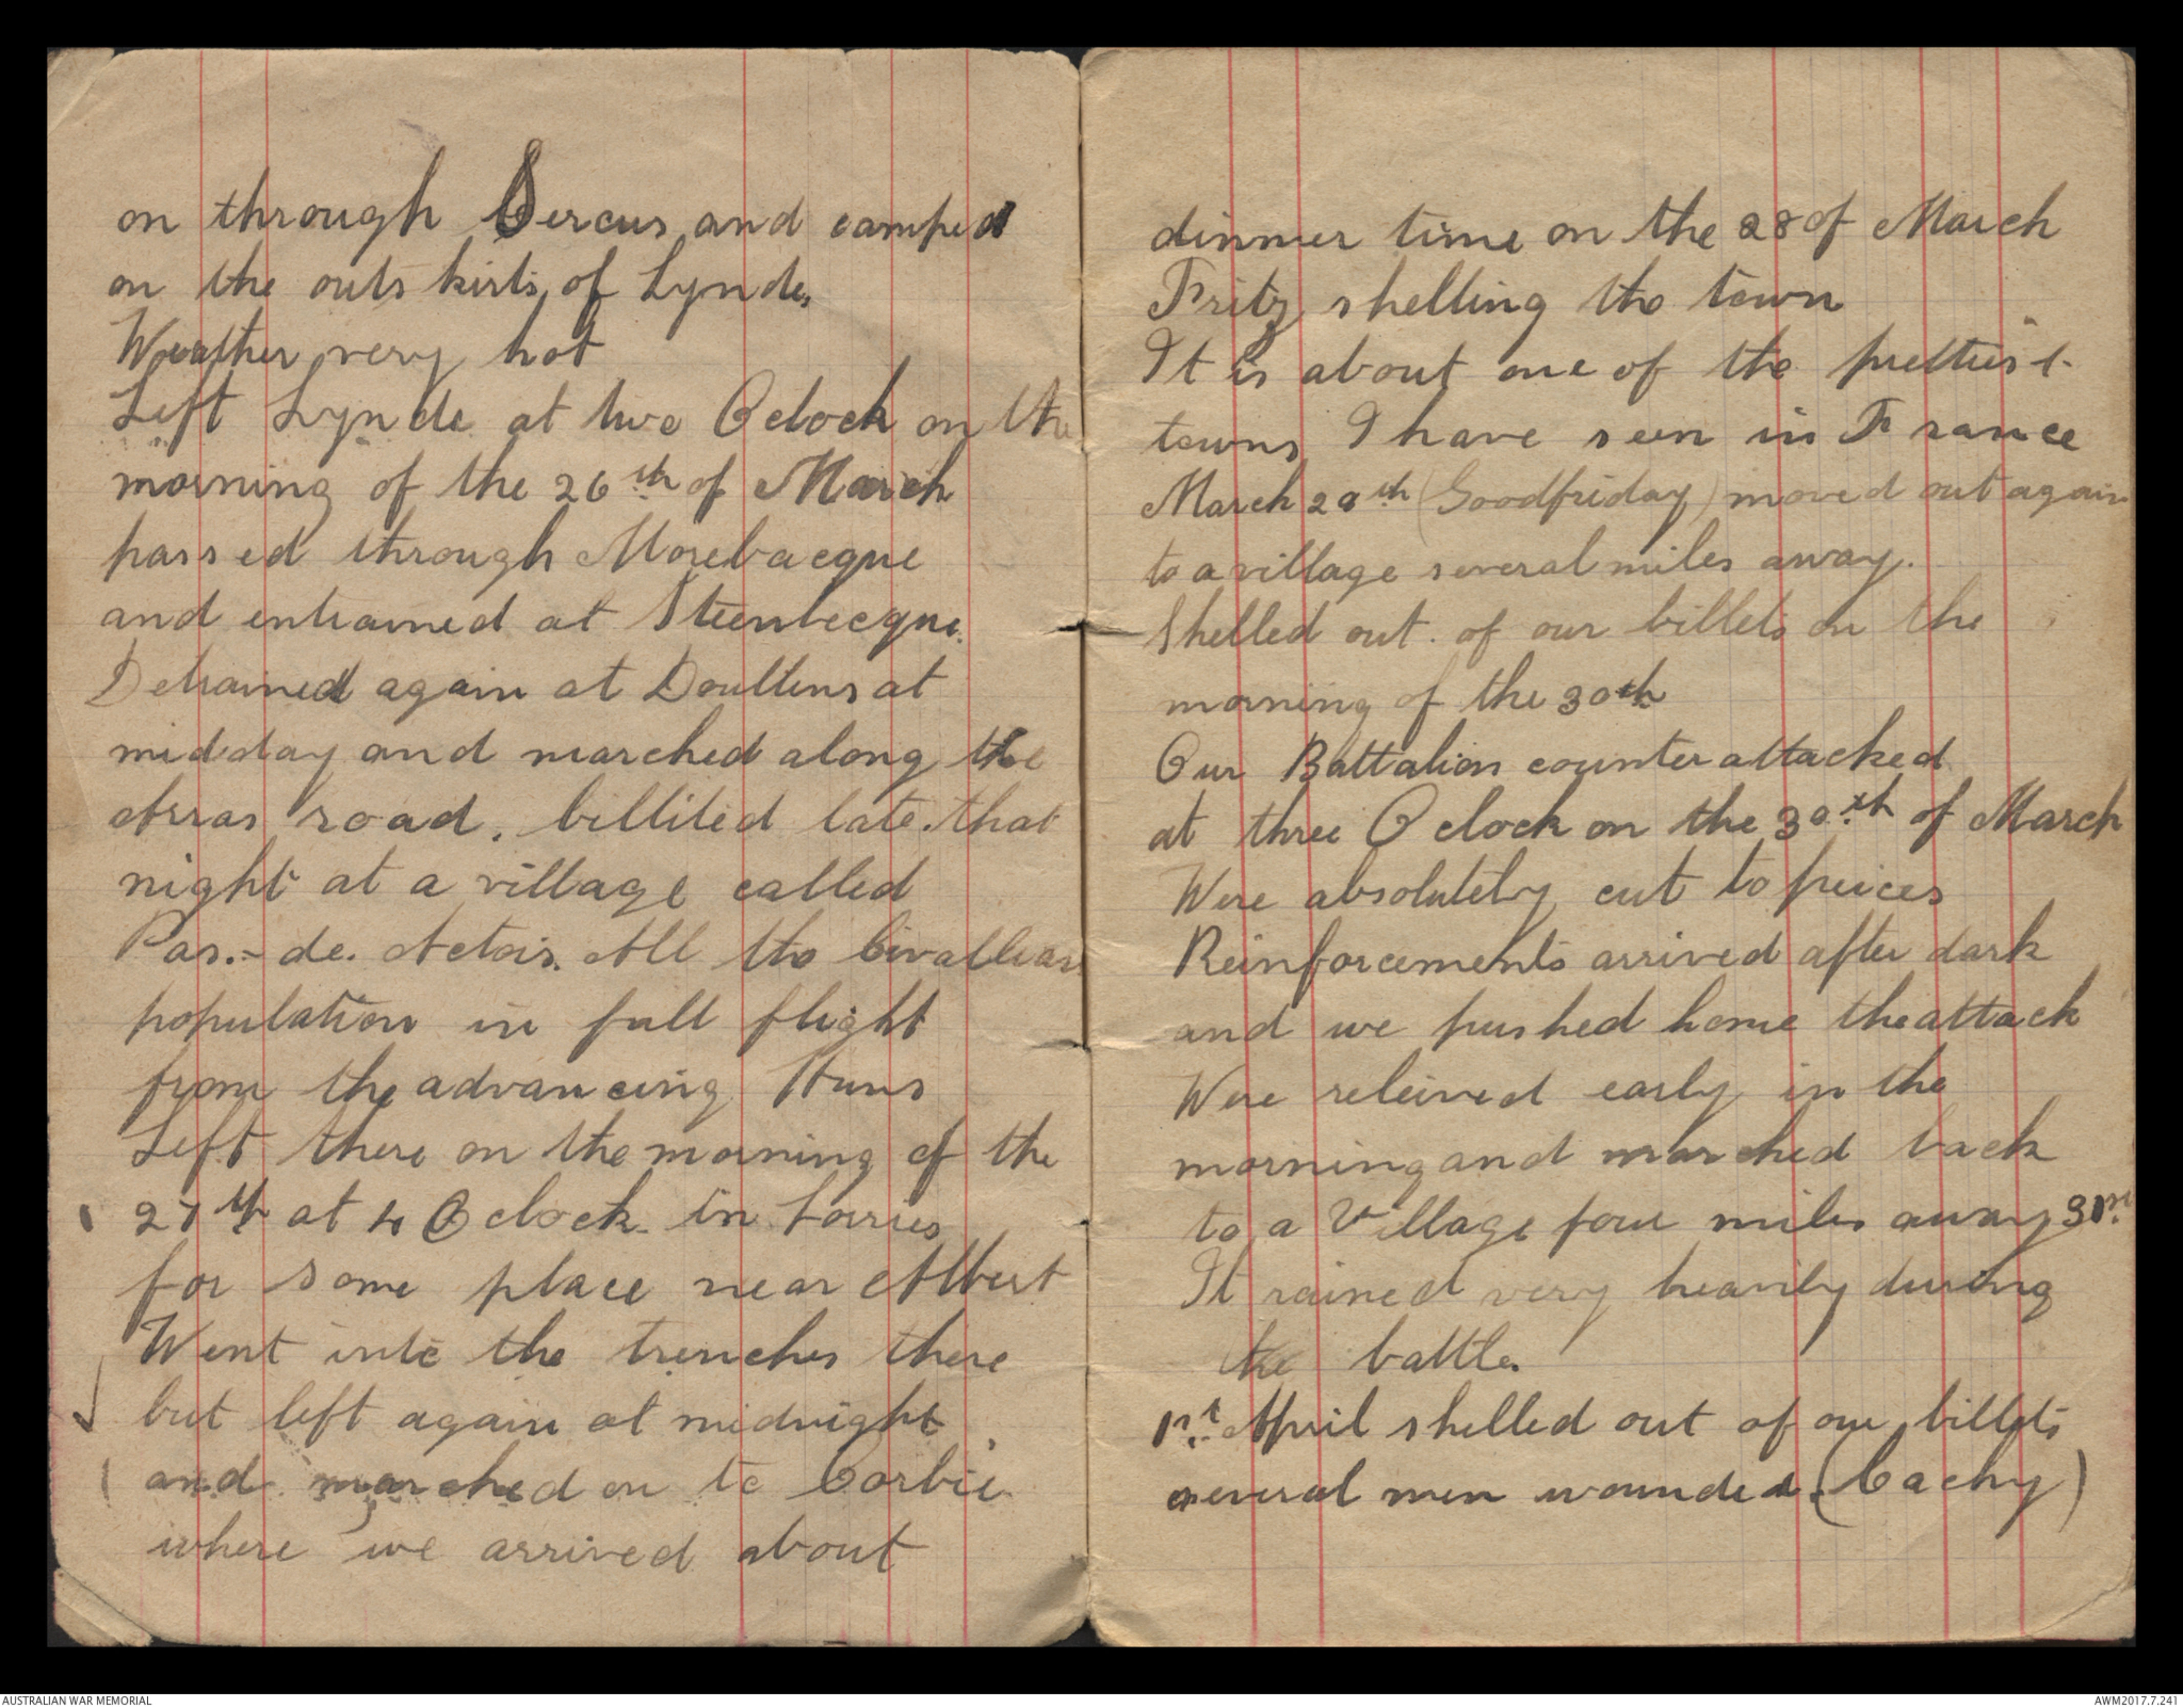 on through Sercus, and camped
on the outs kirts, of Lynde,
Weather very hot
Left Lynde at two Oclock on the
morning of the 26th of March
passed through Morebacque
and entrained at Steenbecque.
Detrained again at Doullens at
midday and marched along the
Arras road. billited late that
night at a village called
Pas.-de. Actois. All the civallian
population in full flight
from the advancing Huns
Left there on the morning of the
27th at 4 O clock in Lorries
for some place near Albert
Went into the trenches there
but left again at midnight
and marched on to Corbie
where we arrived about
dinner time on the 28 of March
Fritz shelling the town
It is about one of the prettiest
towns I have seen in France
March 29th (Goodfriday) moved out again
to a village several miles away.
Shelled out of our billets on the
morning of the 30th
Our Battalion counter attacked
at three O clock on the 30th of March
Were absolutely cut to peices
Reinforcements arrived after dark
and we pushed home the attack
Were releived early in the
morning and marched back
to a Village four miles away 31st
It rained very heavily during
the battle.
1st April shelled out of our billets
several men wounded. (Cachy)
AUSTRALIAN WAR MEMORIAL
AWM2017.7.241